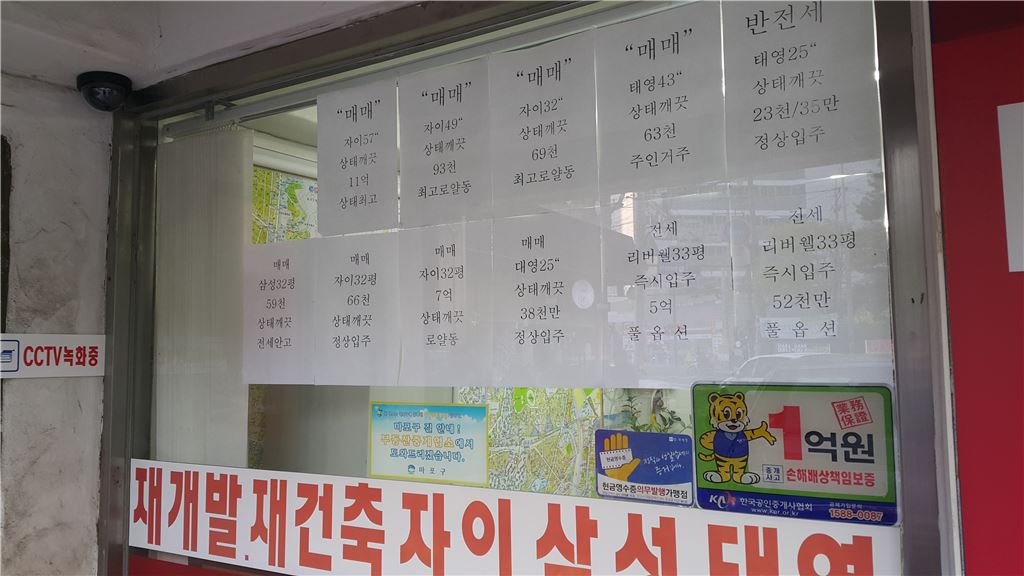 “매매”
자이57“
상태깨끗
11억
상태최고
“매매”
자이49“
상태깨끗
93천
최고로얄동
“매매”
자이32“
상태깨끗
69천
최고로얄동
“매매”
태영43“
상태깨끗
63천
주인거주
반전세
태영25“
상태깨끗
23천/35만
정상입주
매매
삼성32평
59천
상태깨끗
전세안고
매매
자이32평
66천
상태깨끗
정상입주
매매
자이32평
7억
상태깨끗
로얄동
매매
대영25“
상태깨끗
38천만
정상입주
전세
리버웰33평
즉시입주
5억
풀옵션
전세
리버웰33평
즉시입주
52천만
풀옵션
CCTV녹화중
마포구 길 안내!
부동산중개업소에서
도와드리겠습니다.
마포구
현금영수증
현금영수증의무발행가맹점
業務保證
1억원
중개사고
손해배상책임보증
한국공인중개사협회
www.kar.or.kr
1588-0087
재개발.재건축자이삼성태영